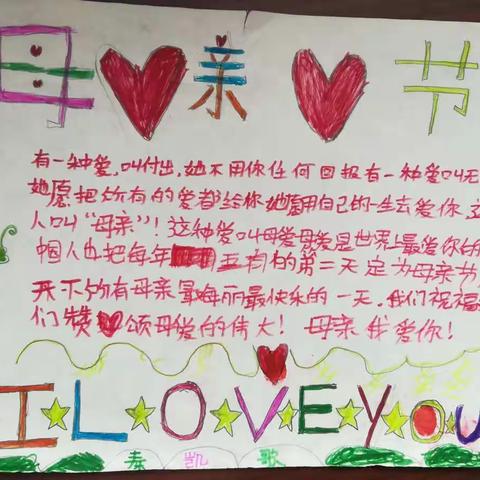 母亲节
有一种爱,叫付出,她不用你任何回报有一种爱叫无
她愿把所有的爱都给你她愿用自己的一生去爱你,这
人叫“母亲”!这种爱叫母爱母爱是世界上最爱你的
国人也把每年五月的第二天定为母亲节
天下所有母亲最每丽最快乐的一天.我们祝福
们赞颂母爱的伟大!母亲我爱你!
I LOVE YOU
凯歌